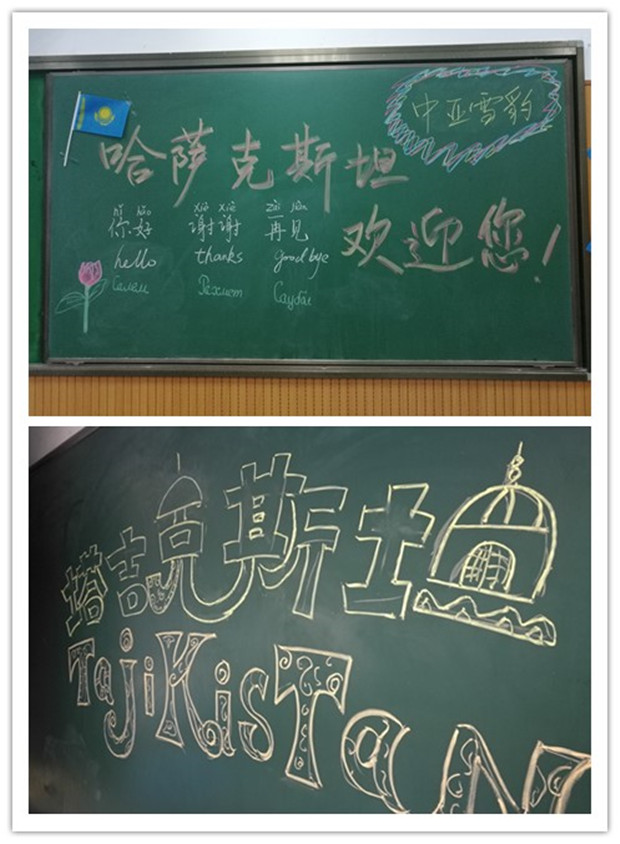 中亚雪豹
哈萨克斯坦
欢迎您!
nǐ hǎo xiè xiè zài jiàn
你好 谢谢 再见
hello thanks goodbye
Салем Рахмет Саубол
塔吉克斯坦
TajiKisTaN